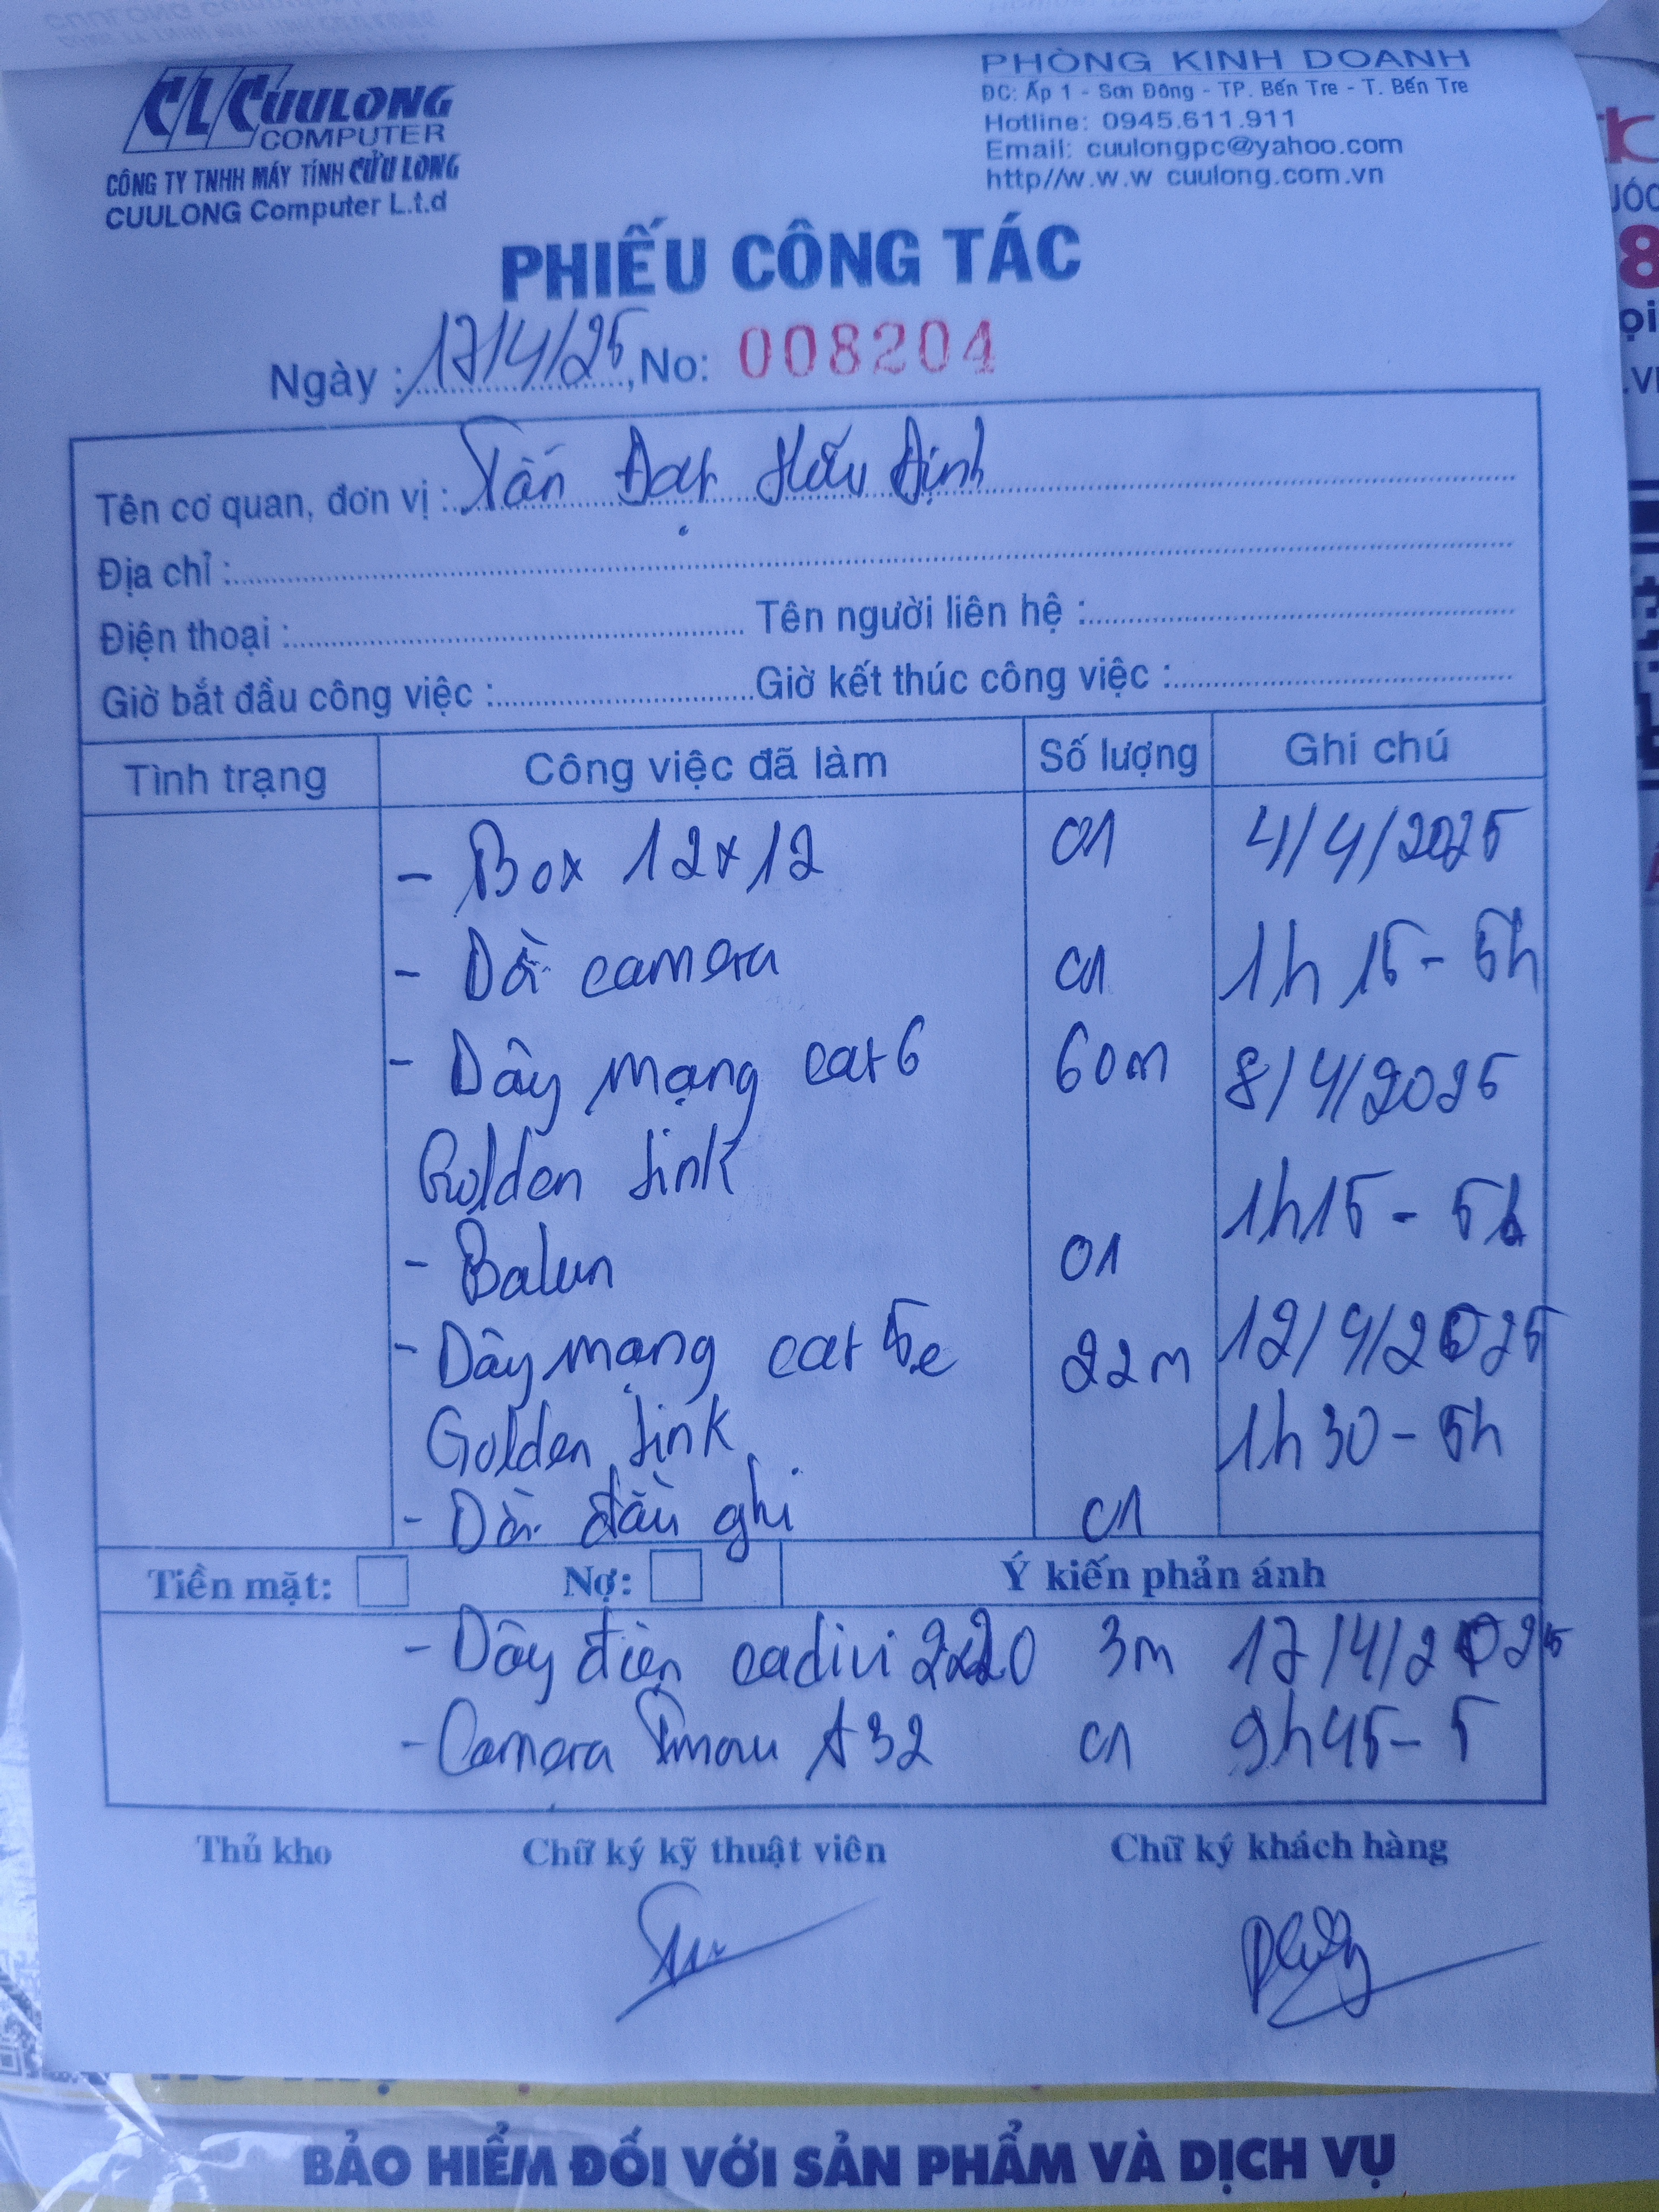 CL CUULONG
COMPUTER
CÔNG TY TNHH MÁY TÍNH CỬU LONG
CUULONG Computer L.t.d
PHÒNG KINH DOANH
ĐC: Ấp 1 - Sơn Đông - TP. Bến Tre - T. Bến Tre
Hotline: 0945.611.911
Email: cuulongpc@yahoo.com
http//w.w.w cuulong.com.vn
PHIẾU CÔNG TÁC
Ngày : 17/4/25, No: 008204
Tên cơ quan, đơn vị : Tấn Đạt Hữu Định
Địa chỉ :
Điện thoại : Tên người liên hệ :
Giờ bắt đầu công việc : Giờ kết thúc công việc :
Tình trạng Công việc đã làm Số lượng Ghi chú
- Box 12x12 01 4/4/2025
- Dời camera 01 1h15 - 5h
- Dây mạng cat6 60m 8/4/2025
Golden Link 1h15 - 5h
- Balun 01
- Dây mạng cat 5e 22m 12/4/2025
Golden Link 1h30 - 5h
- Dời đầu ghi 01
Tiền mặt: Nợ: Ý kiến phản ánh
- Dây điện cadivi 2x20 3m 17/4/2025
- Camera Imou A32 01 9h45 - 5
Thủ kho Chữ ký kỹ thuật viên Chữ ký khách hàng
BẢO HIỂM ĐỐI VỚI SẢN PHẨM VÀ DỊCH VỤ